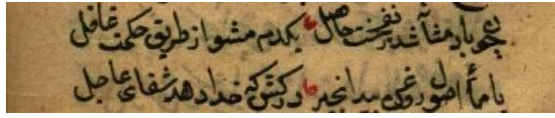 چو باد مثانه شد ز نفخت حاصل یکدم مشو از طریق حکمت غافل
با ماء اصول روغن بیدانجیر درکش که خدا دهد شفای عاجل